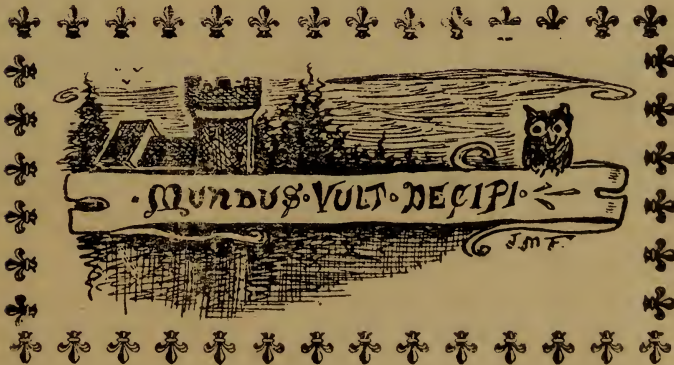 ·MUNDUS·VULT·DECIPI·
J.M.F.